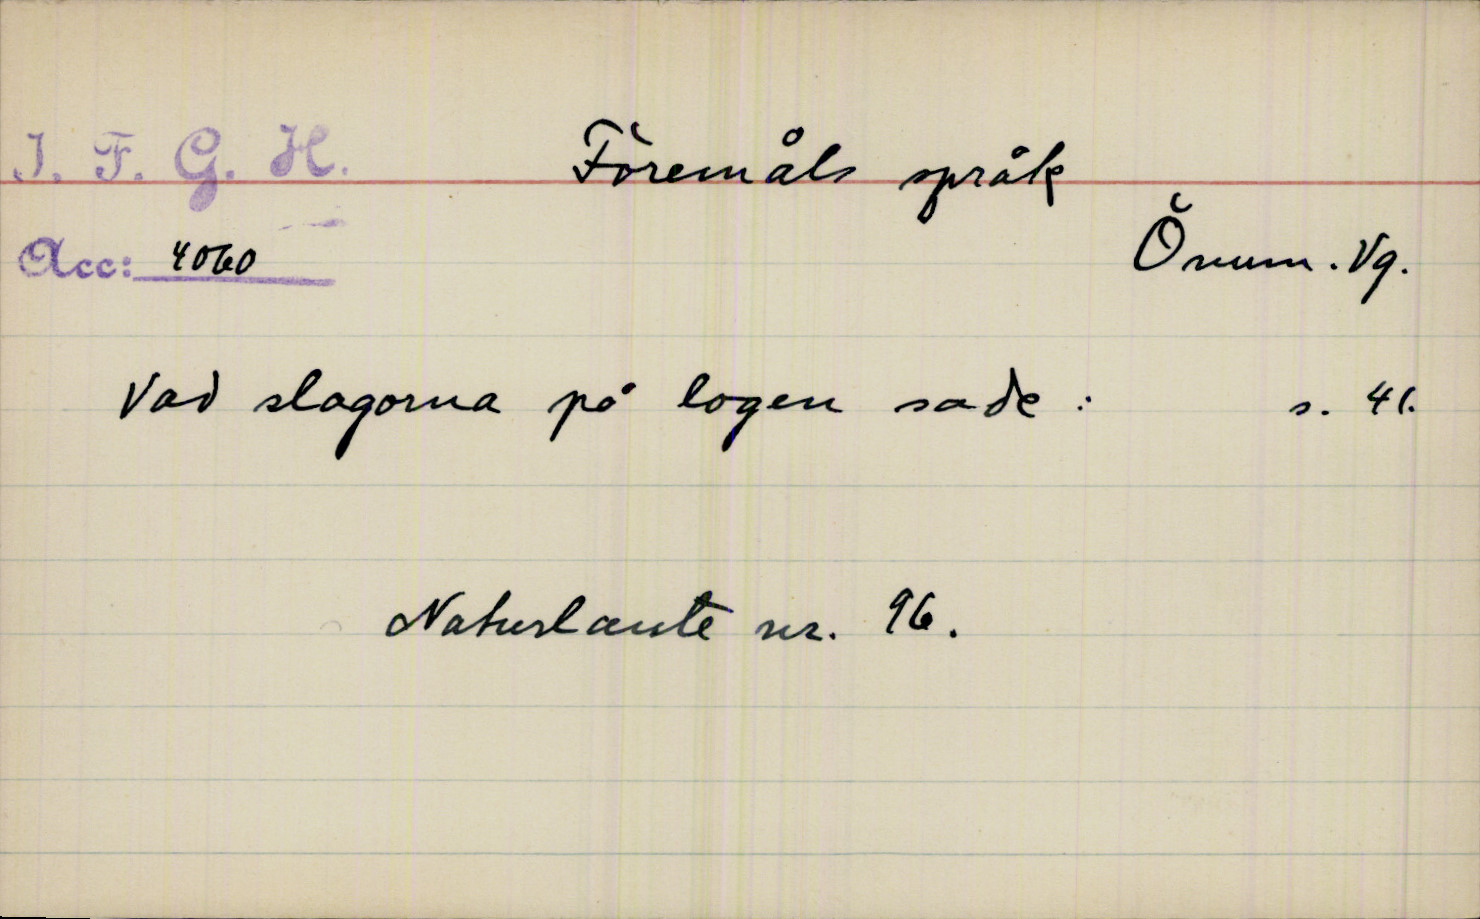 I. F. G. H.
Föremåls språk
Acc: 4060
Önum. Vg.
Vad slagorna på logen sade : s. 41.
Naturlaute nr. 96.